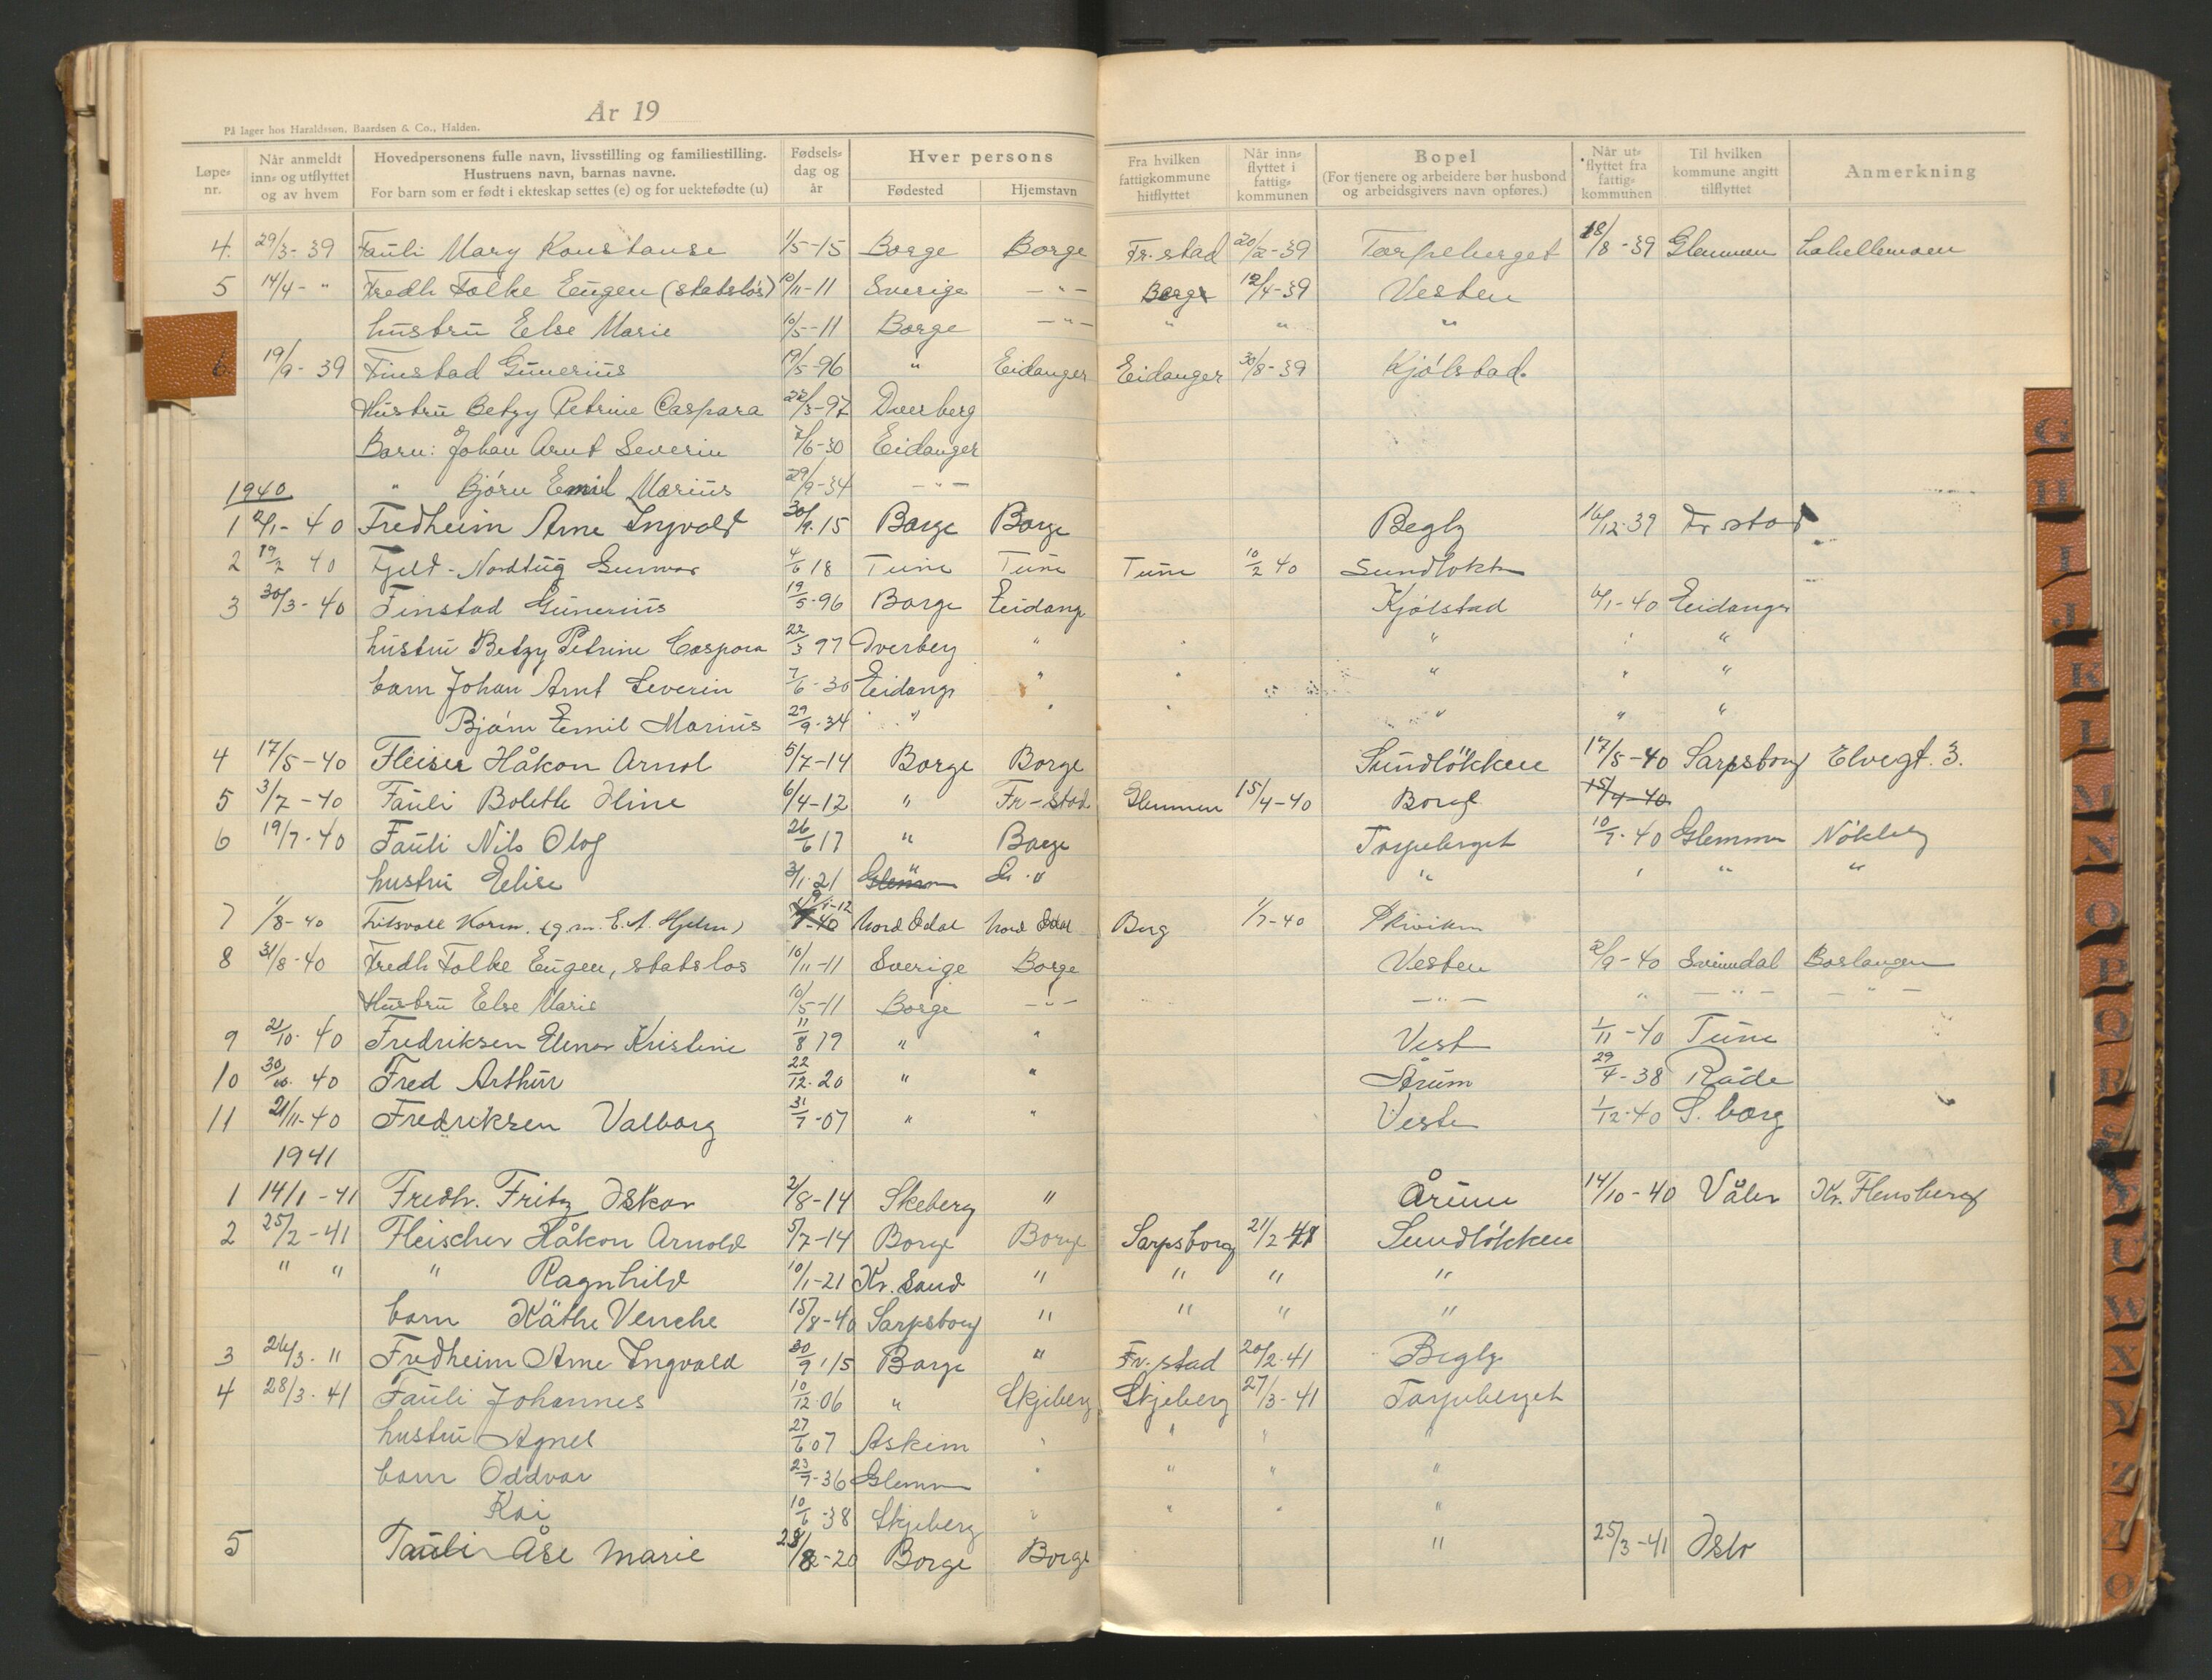 Ar 19
På lager hos Haraldssøn, Baardsen & Co., Halden.
Løpe-nr. Når anmeldt inn- og utflyttet og av hvem Hovedpersonens fulle navn, livsstilling og familiestilling. Hustruens navn, barnas navne. For barn som er født i ekteskap settes (e) og for uektefødte (u) Fødsels-dag og år Hver persons Fødested Hjemstavn Fra hvilken fattigkommune hitflyttet Når inn-flyttet i fattig-kommunen Bopel (For tjenere og arbeidere bør husbond og arbeidsgivers navn opføres.) Når ut-flyttet fra fattig-kommunen Til hvilken kommune angitt tilflyttet Anmerkning
4. 29/3-39 Fauli Mary Konstanse 1/5-15 Borge Borge Fr.stad 20/2-39 Torpeberget 18/8-39 Glemmen Lahellemoen
5 14/4- " Fredh Folke Eugen (statsløs) 10/11-11 Sverige -"- Borge 12/4-39 Vesten
hustru Else Marie 10/5-11 Borge -"- " " "
6. 19/9-39 Finstad Gunerius 19/5-96 " Eidanger Eidanger 30/8-39 Kjølstad.
Hustru Betzy Petrine Caspara 22/3-97 Dverberg
Barn: Johan Arnt Severin 7/6-30 Eidanger
" Bjørn Emil Marius 29/9-34 -"-
1940
1 2/1-40 Fredheim Arne Ingvald 30/9.15 Borge Borge Begby 16/12-39 Fr stad
2 19/2 40 Fjeld-Nordtug Gunvor 4/6 18 Tune Tune Tune 10/2 40 Sundløkk
3 30/3-40 Finstad Gunerius 19/5-96 Borge Eidang Kjølstad 6/1-40 Eidanger
hustru Betzy Petrine Caspara 22/3 97 Dverberg " " " " "
barn Johan Arnt Severin 7/6-30 Eidange " " " " "
Bjørn Emil Marius 29/9-34 " " " " " "
4 17/5-40 Fleiser Håkon Arnol 5/7-14 Borge Borge Sundløkken 17/5-40 Sarpsborg Elvegt. 3.
5 3/7-40 Fauli Boleth Oline 6/4-12 " Fr-stad Glemmen 15/4-40 Borge 15/4-40
6 19/7-40 Fauli Nils Olof 26/6 17 " Borge Torpeberget 10/7-40 Glemmen Nøkleby
hustru Elise 3/1-21 Glemm " " " " "
7 1/8-40 Karen (g.m. E. A. Hjelm) Nord Odal Nord Odal Berg 1/7-40 Skiviken
8 31/8-40 Fredh Folke Eugen, statsløs 10/11-11 Sverige Borge Vesten 2/9-40 Svinndal Boslangen
Hustru Else Marie 10/5-11 Borge -"- -"- " -"- -"-
9 21/10-40 Fredriksen Elenor Kristine 11/8 19 " " Vest 1/11-40 Tune
10 30/10-40 Fred Arthur 22/12-20 " " Årum 29/4-38 Råde
11 21/11-40 Fredriksen Valborg 31/7-07 " " Veste 1/12-40 S.borg
1941
1 14/1-41 Fredh. Fritz Oskar 2/8-14 Skeberg " Årum 14/10-40 Våler Kr. Flensberg
2 25/2-41 Fleischer Håkon Arnold 5/7-14 Borge Borge Sarpsborg 21/2-41 Sundløkken
" " " Ragnhild 10/1-21 Kr. Sand " " " "
barn Käthe Venche 15/8-40 Sarpsborg " " " "
3 26/3- " Fredheim Arne Ingvald 30/9 15 Borge " Fr.stad 20/2-41 Begby
4 28/3-41 Fauli Johannes 10/12-06 " Skjeberg Skjeberg 27/3-41 Torpeberget
hustru Agnes 27/6 07 Askim " " " "
barn Oddvar 23/7-36 Glemm " " " "
Kai 10/6-38 Skjeberg " " " "
5 Fauli Åse Marie 28/8-20 Borge Borge " 25/3-41 Oslo